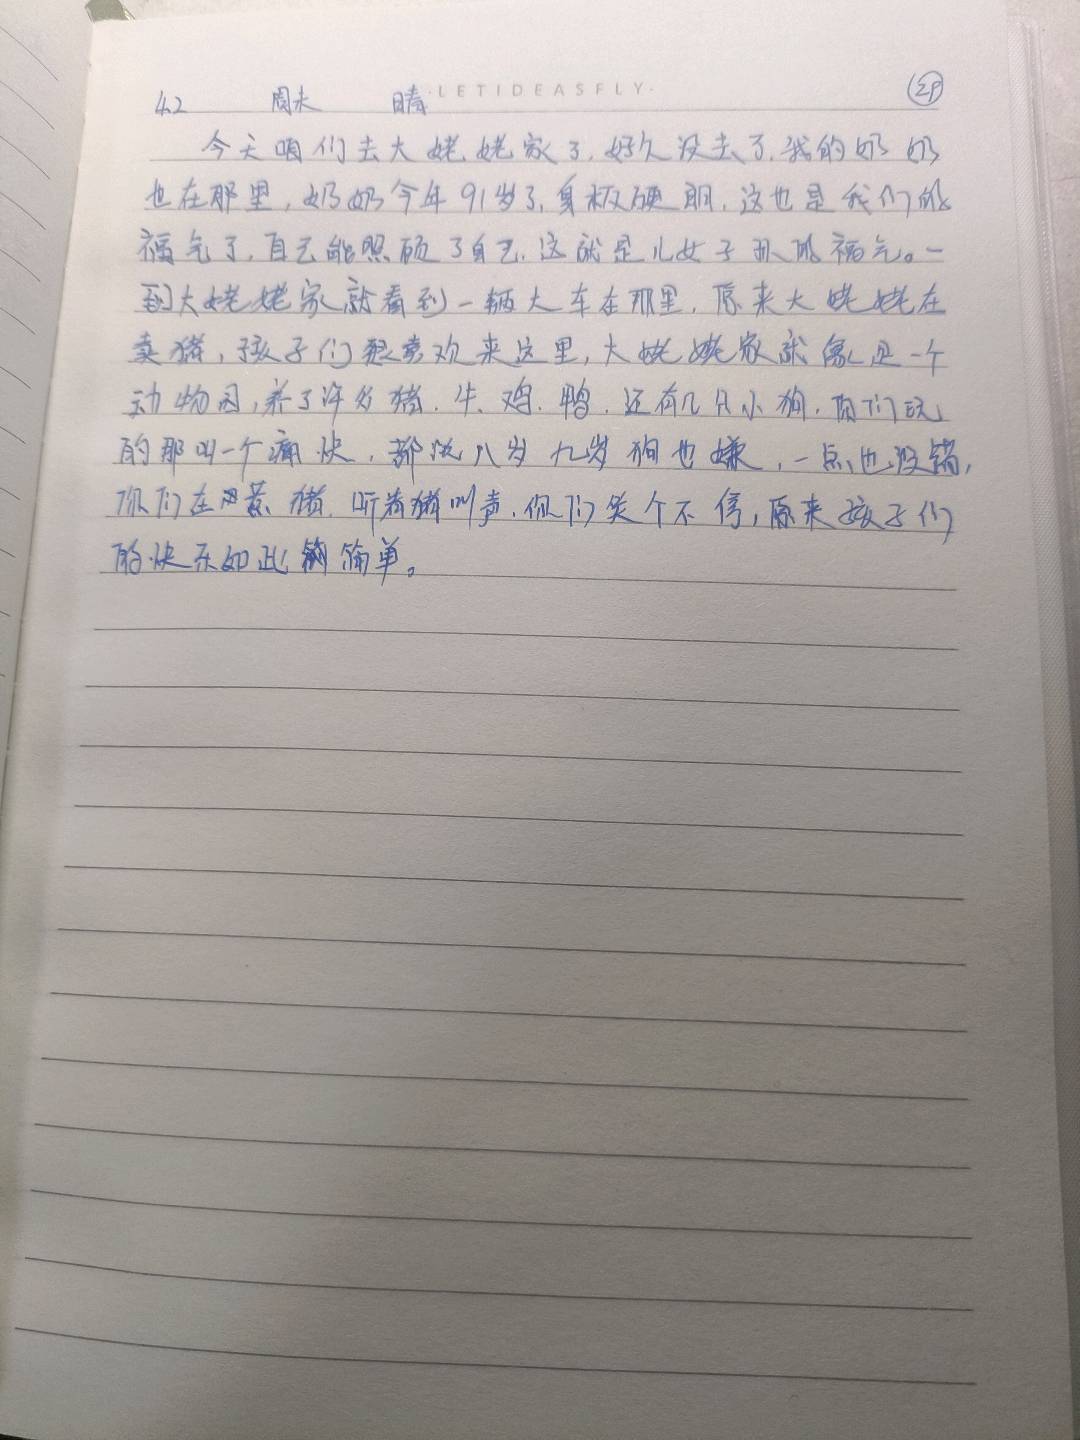 ·LETIDEASFLY·
4.2 周末 晴 29
今天咱们去大姥姥家了,好久没去了,我的奶奶
也在那里,奶奶今年91岁了,身板硬朗,这也是我们的
福气了,自己能照顾了自己,这就是儿女子孙的福气。一
到大姥姥家就看到一辆大车在那里,原来大姥姥在
卖猪,孩子们很喜欢来这里,大姥姥家就像是一个
动物园,养了许多猪、牛、鸡、鸭,还有几只小狗,你们玩
的那叫一个痛快,都说八岁九岁狗也嫌,一点也没错,
你们在惹猪,听着猪叫声,你们笑个不停,原来孩子们
的快乐如此简单。